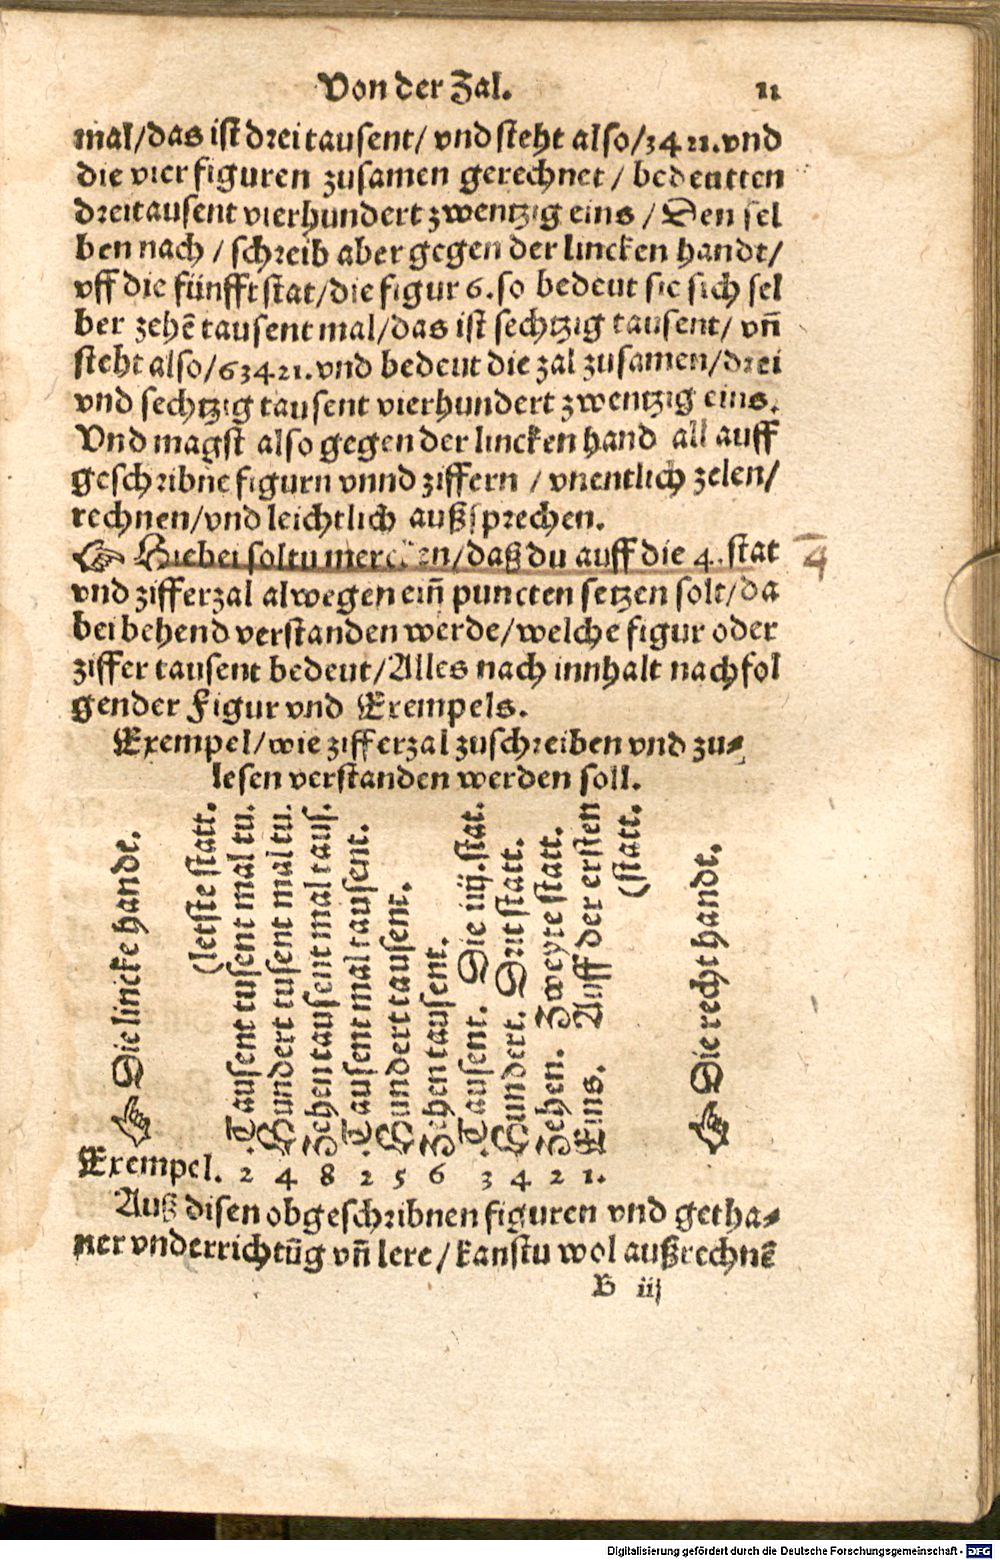 Von der Zal. 11
mal/das ist drei tausent/ vnd steht also/3421.vnd
die vier figuren zusamen gerechnet / bedeutten
dreitausent vierhundert zwentzig eins / Den sel
ben nach / schreib aber gegen der lincken handt/
vff die fünfft stat/die figur 6.so bedeut sie sich sel
ber zehẽ tausent mal/das ist sechtzig tausent/ vñ
steht also/63421.vnd bedeut die zal zusamen/drei
vnd sechtzig tausent vierhundert zwentzig eins.
Vnd magst also gegen der lincken hand all auff
geschribne figurn vnnd ziffern / vnentlich zelen/
rechnen/vnd leichtlich außsprechen.
☞ Hiebei soltu mercken/daß du auff die 4.stat
4
vnd zifferzal alwegen eiñ puncten setzen solt/da
bei behend verstanden werde/welche figur oder
ziffer tausent bedeut/Alles nach innhalt nachfol
gender Figur vnd Exempels.
Exempel/wie zifferzal zuschreiben vnd zu-
lesen verstanden werden soll.
☞ Die lincke handt.
(letste statt.
Tausent tusent mal tu.
Hundert tusent mal tu.
Zehen tausent mal taus.
Tausent mal tausent.
Hundert tausent.
Zehen tausent.
Tausent. Die iiij.stat.
Hundert. Drit statt.
Zehen. Zweyte statt.
Eins. Auff der ersten
(statt.
☞ Die recht handt.
Exempel. 2 4 8 2 5 6 3 4 2 1.
Auß disen obgeschribnen figuren vnd getha-
ner vnderrichtũg vñ lere / kanstu wol außrechnẽ
B iij
Digitalisierung gefördert durch die Deutsche Forschungsgemeinschaft - DFG